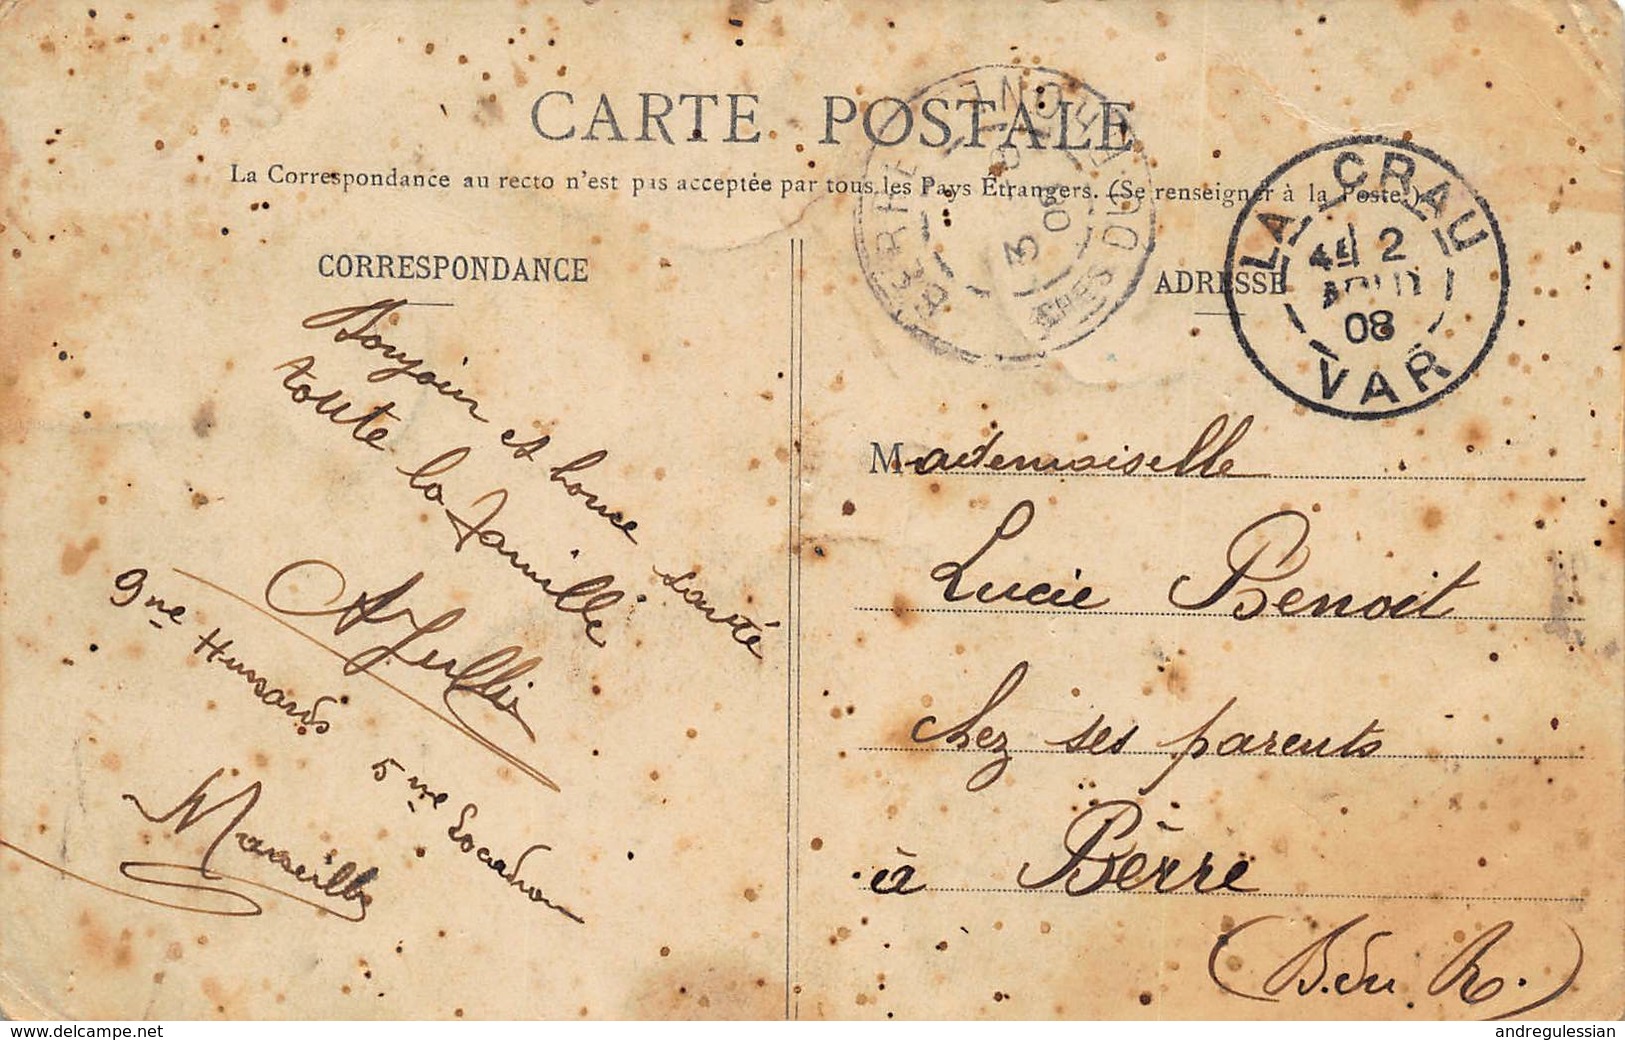 CARTE POSTALE
La Correspondance au recto n'est pas acceptée par tous les Pays Étrangers. (Se renseigner à la Poste.)
CORRESPONDANCE
Bonjoin et bonne santé
toute la famille
A Jullien
9me Hussards 5me Escadron
Marseille
ADRESSE
LA CRAU
2
AOUT
08
VAR
BERRE L'ETANG
3
08
BCHES DU
Mademoiselle
Lucie Benoit
chez ses parents
à Bèrre
(B. du R.)
www.delcampe.net
andregulessian